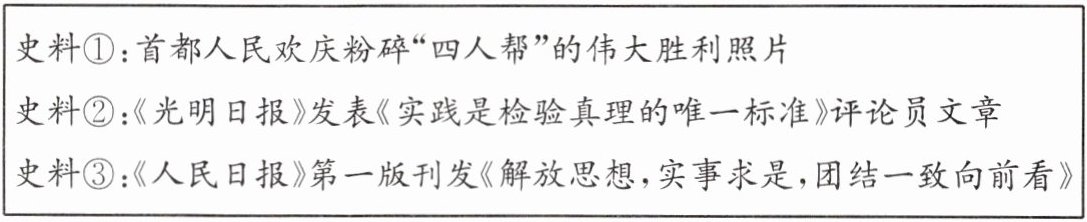 史料①:首都人民欢庆粉碎“四人帮”的伟大胜利照片
史料②:《光明日报》发表《实践是检验真理的唯一标准》评论员文章
史料③:《人民日报》第一版刊发《解放思想,实事求是,团结一致向前看》